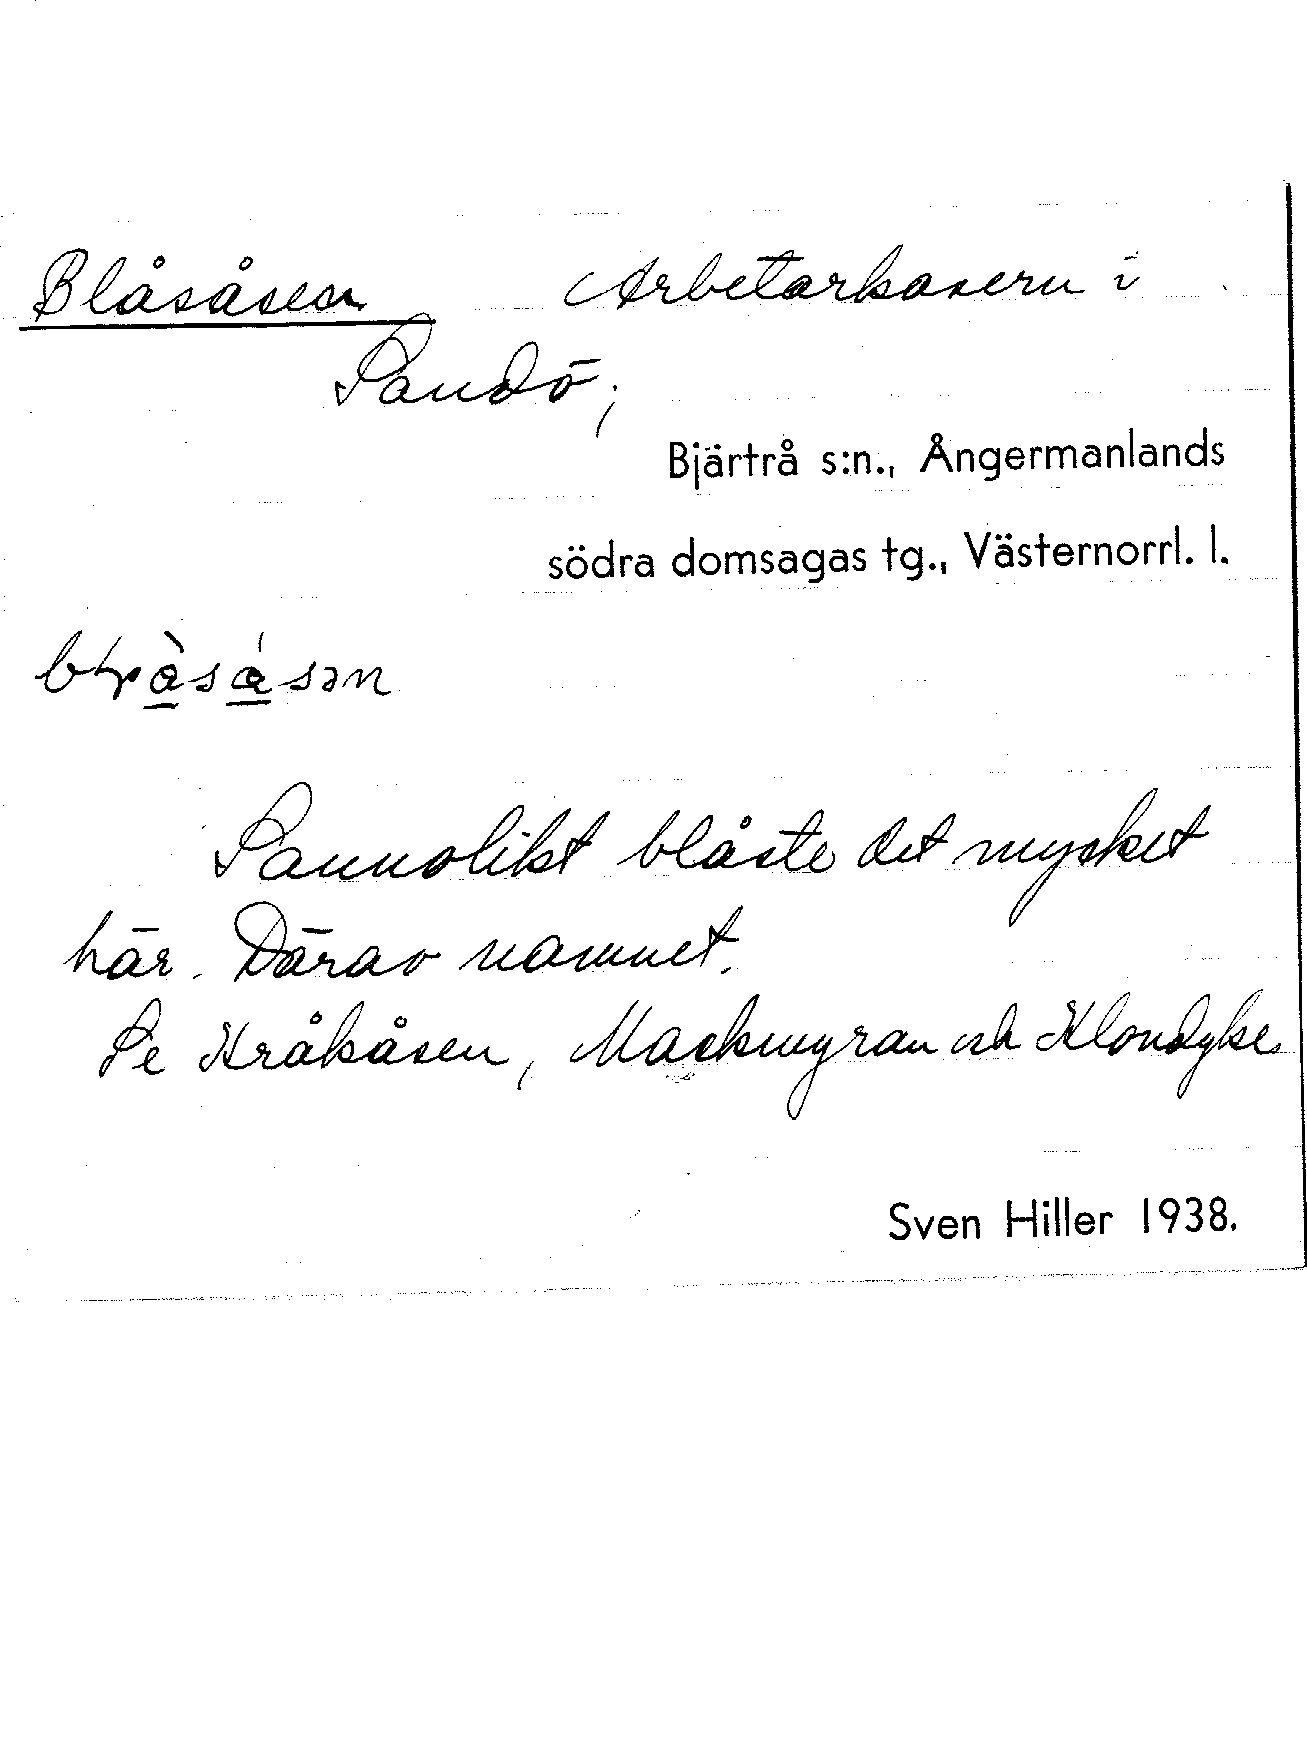 Blåsåsen Arbetarkasern i
Sandö,
Bjärtrå s:n., Ångermanlands
södra domsagas tg., Västernorrl. l.
Sannolikt blåste det mycket
här. Därav namnet.
Se Kråkåsen, Mackmyran och Klondyke
Sven Hiller 1938.